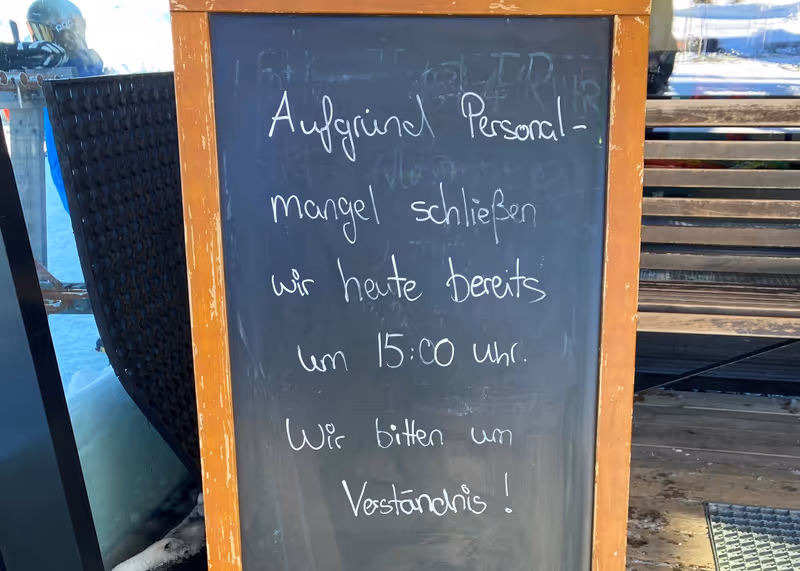 Aufgrund Personal-
mangel schließen
wir heute bereits
um 15:00 Uhr.
Wir bitten um
Verständnis!